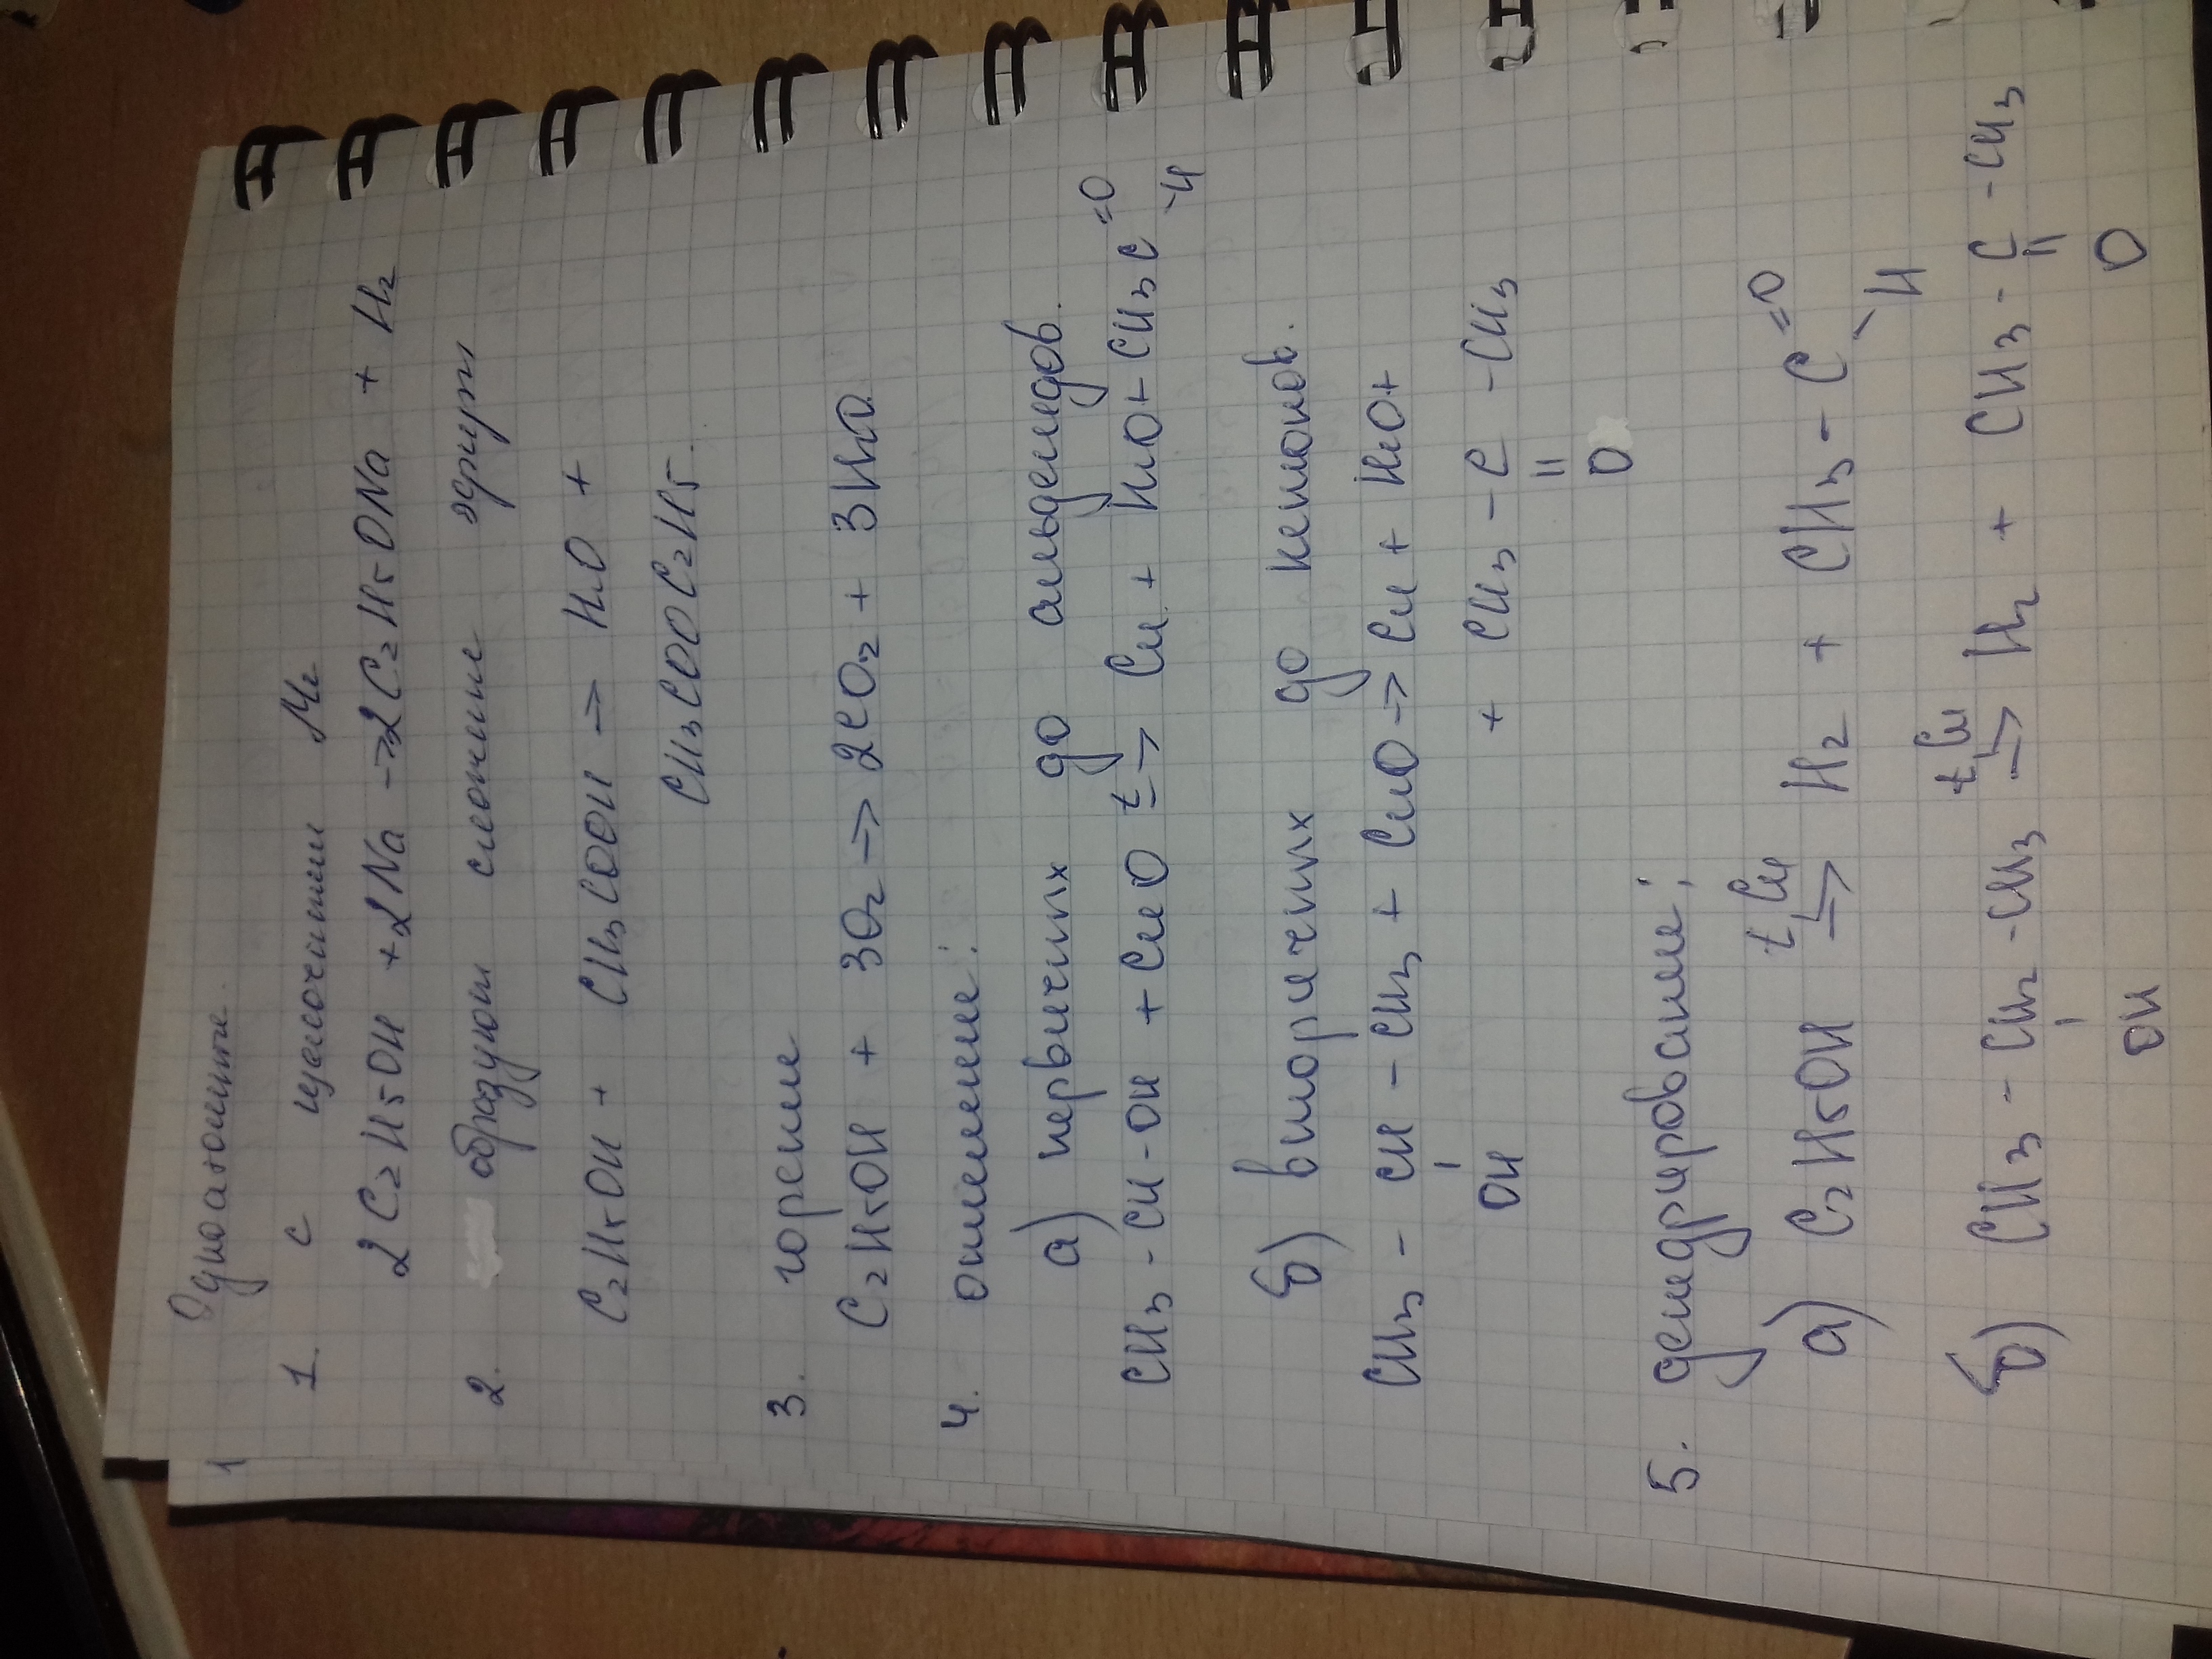 Одноатомные.
1. с щелочными Ме
2C₂H₅OH + 2Na → 2C₂H₅ONa + H₂
2. образуют сложные эфиры
C₂H₅OH + CH₃COOH → H₂O +
CH₃COOC₂H₅.
3. горение
C₂H₅OH + 3O₂ → 2CO₂ + 3H₂O.
4. окисление:
а) первичных до альдегидов.
CH₃-CH-OH + CuO t→ Cu + H₂O + CH₃C=O
-H
б) вторичных до кетонов.
CH₃ - CH - CH₃ + CuO → Cu + H₂O +
OH + CH₃ - C - CH₃
O
5. дегидрирование:
а) C₂H₅OH t Cu → H₂ + CH₃ - C =O
\H
б) CH₃ - CH₂ - CH₃ t Cu → H₂ + CH₃ - C - CH₃
OH O